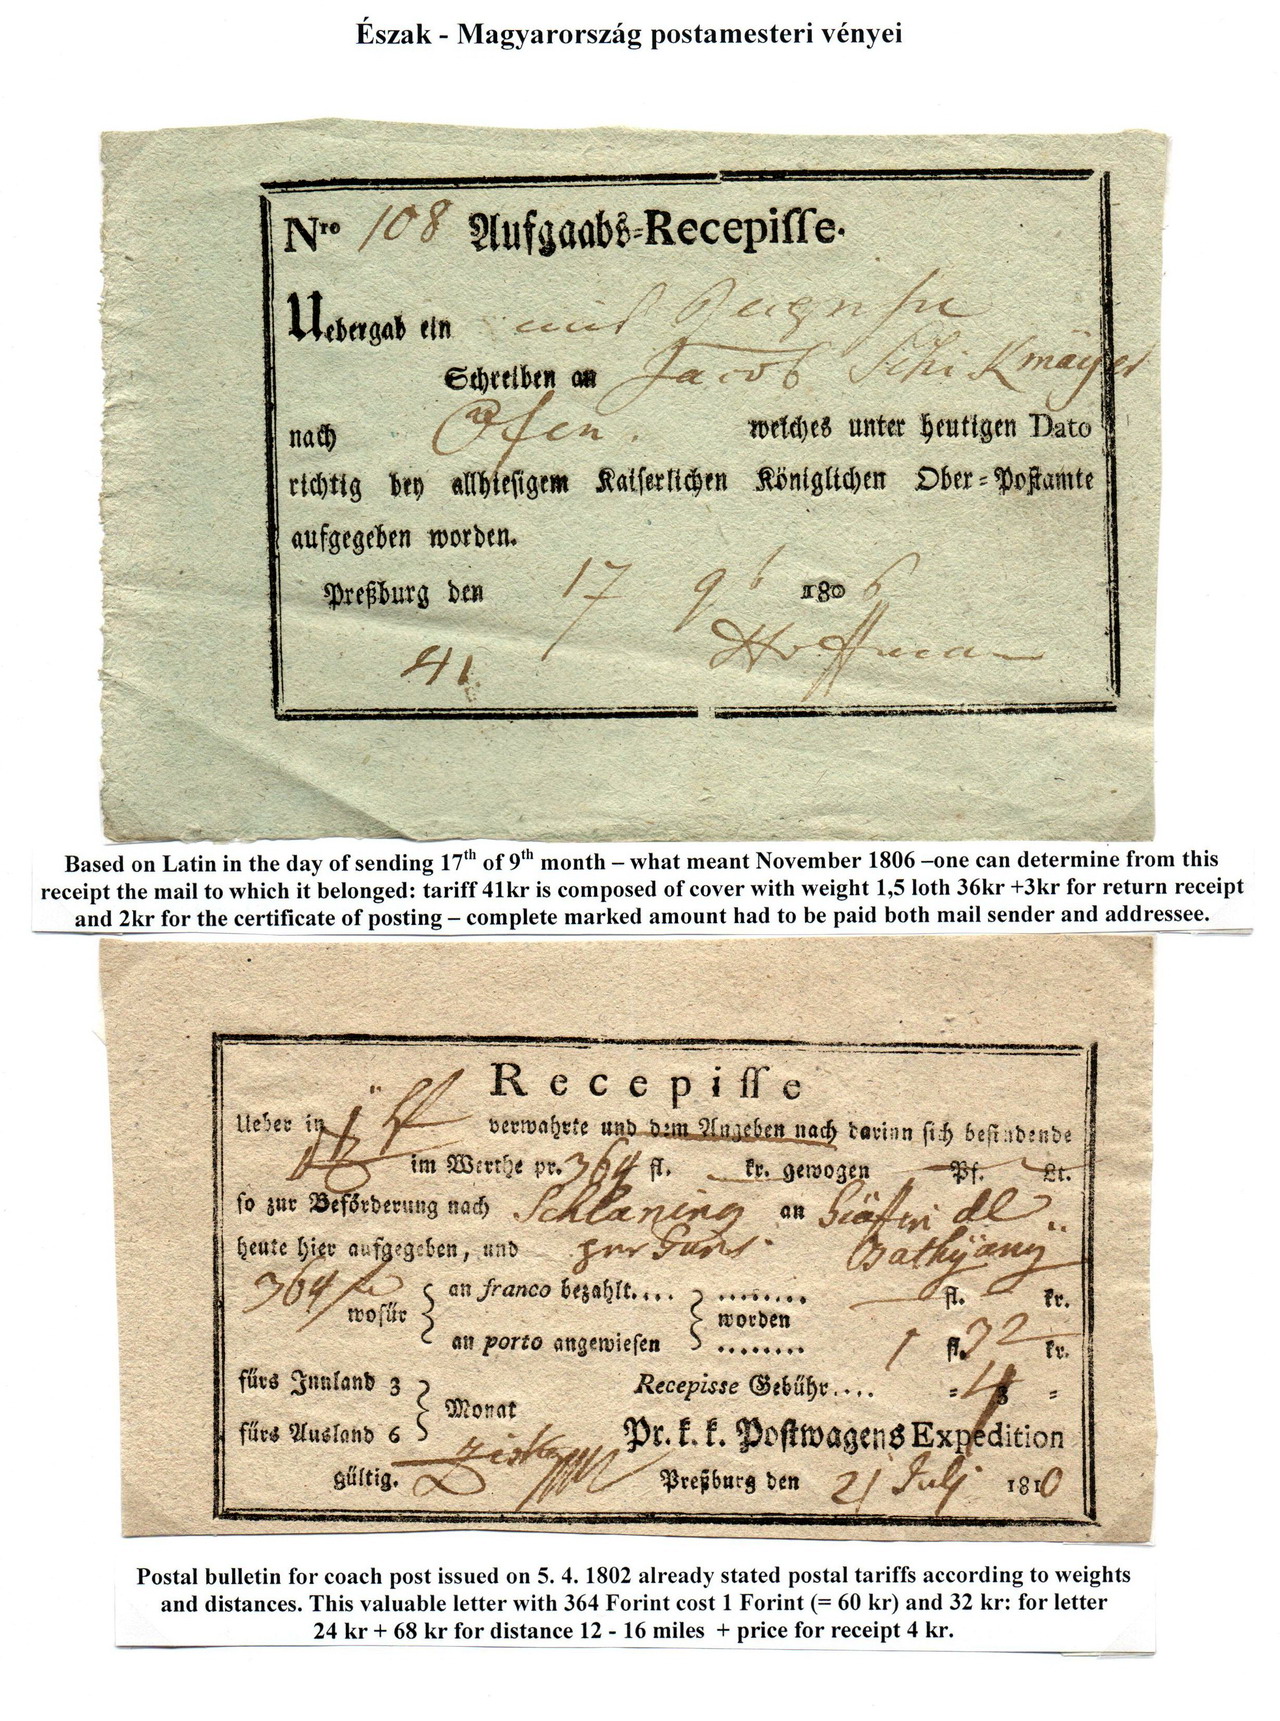 Észak - Magyarország postamesteri vényei
Nro 108 Aufgaabs=Recepisse.
Uebergab ein
Schreiben an Jacob Schikmayer
nach Ofen. welches unter heutigen Dato
richtig bey allhiesigem Kaiserlichen Königlichen Ober=Postamte
aufgegeben worden.
Preßburg den 17 9b 1806
41 Hoffman
Based on Latin in the day of sending 17th of 9th month – what meant November 1806 –one can determine from this
receipt the mail to which it belonged: tariff 41kr is composed of cover with weight 1,5 loth 36kr +3kr for return receipt
and 2kr for the certificate of posting – complete marked amount had to be paid both mail sender and addressee.
Recepisse
Ueber in verwahrte und dem Angeben nach darinn sich befindende
im Werthe pr. 364 fl. kr. gewogen Pf. Lt.
so zur Beförderung nach Schlaning an Gräfin de
heute hier aufgegeben, und per Guns. Bathÿany
364 wofür
an franco bezahlt.... ........ fl. kr.
worden
an porto angewiesen ........ 1 fl. 32 kr.
fürs Innland 3 Recepisse Gebühr.... = 4 =
Monat
fürs Ausland 6 Pr. k. k. Postwagens Expedition
gültig. Preßburg den 21 Julj 1810
Postal bulletin for coach post issued on 5. 4. 1802 already stated postal tariffs according to weights
and distances. This valuable letter with 364 Forint cost 1 Forint (= 60 kr) and 32 kr: for letter
24 kr + 68 kr for distance 12 - 16 miles + price for receipt 4 kr.